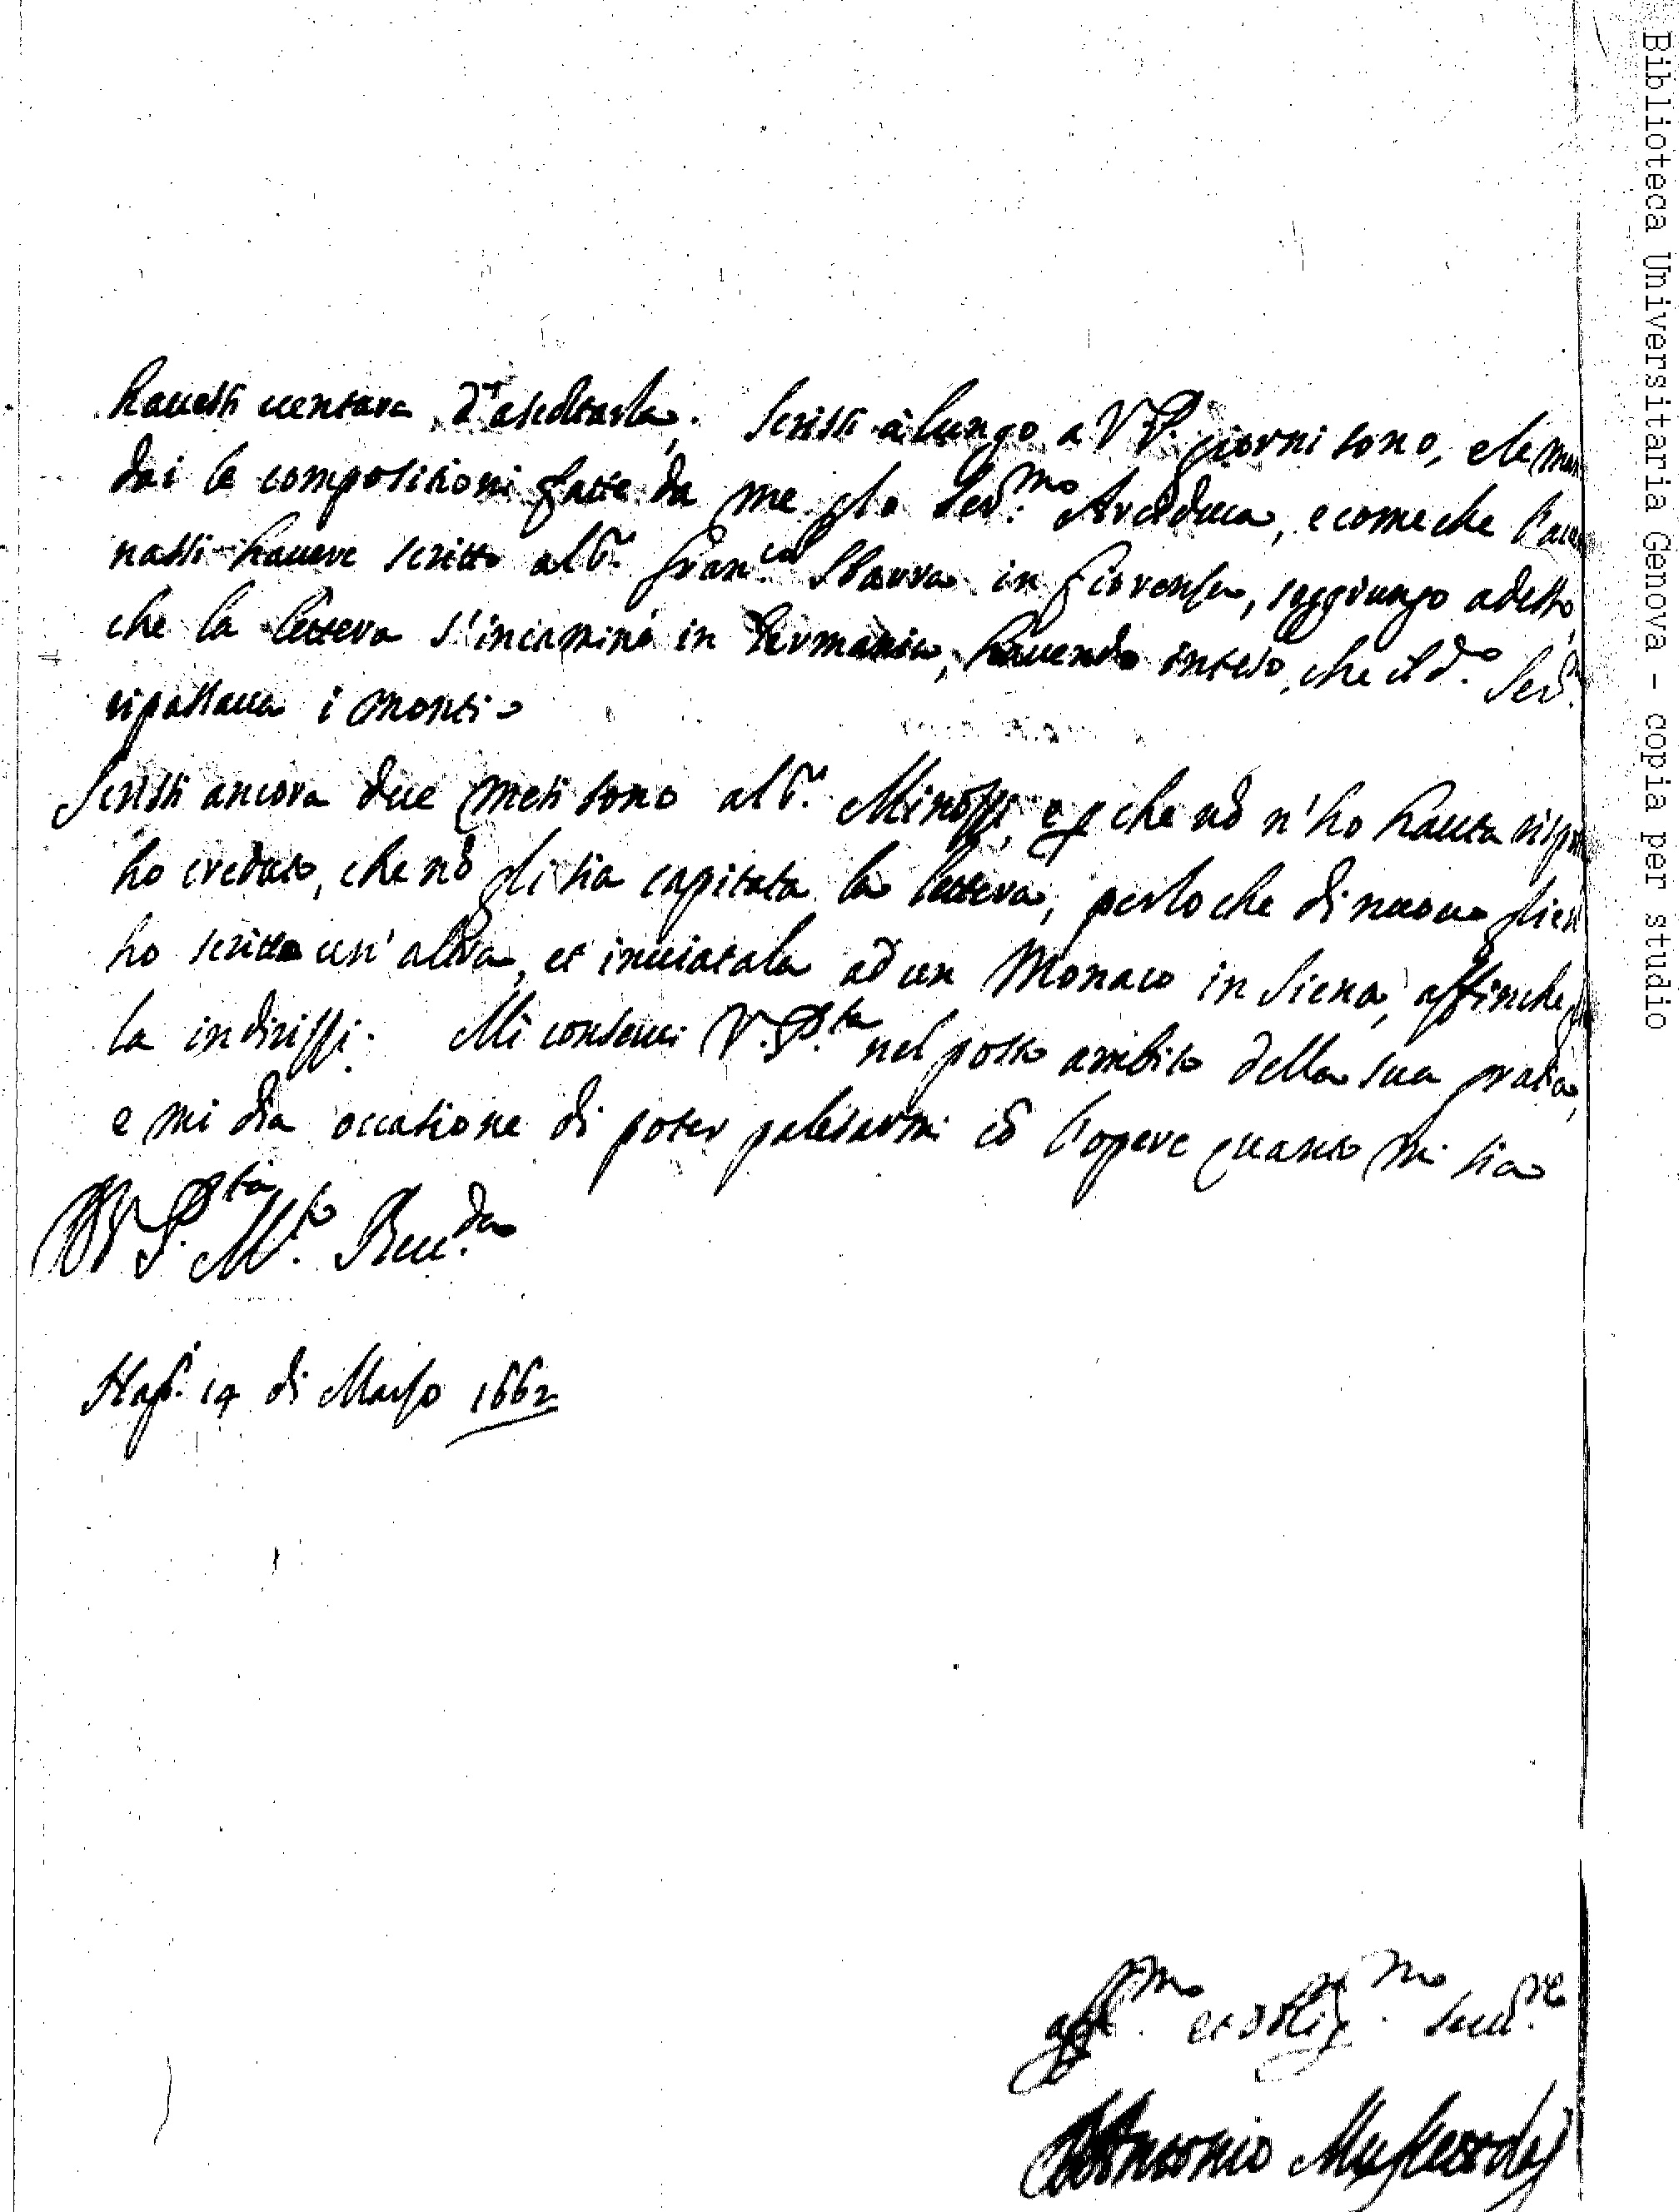 hauessi uentura d'ascoltarla. Scrissi à lungo a V.P. giorni sono, e le man
dai le compositioni fatte da me p lo Ser.mo Arciduca, e come che l'acce
nassi hauere scritto al S.r Fran.co Sbarra in Fiorenza, soggiungo adesso,
che la lettera s'incaminò in Germania, hauendo inteso, che il d.o Ser.
ripassaua i monti.
Scrissi ancora due mesi sono al S.r Minozzi, e p che nõ n'ho hauta rispo
ho creduto, che nõ gli sia capitata la lettera, perloche di nuouo gliene
ho scritta un'altra, et inuiatala ad un Monaco in Siena, affinche
la indirizzi. Mi conserui V. P.tà nel posto ambito della sua gratia,
e mi dia occasione di poter palesarmi cõ l'opere quanto mi sia
D V. P.tà M.to Reu.da
Nap. 14 di Marzo 1662
aff.mo et oblig.mo seru.re
D. Antonio Muscettola
Biblioteca Universitaria Genova - copia per studio